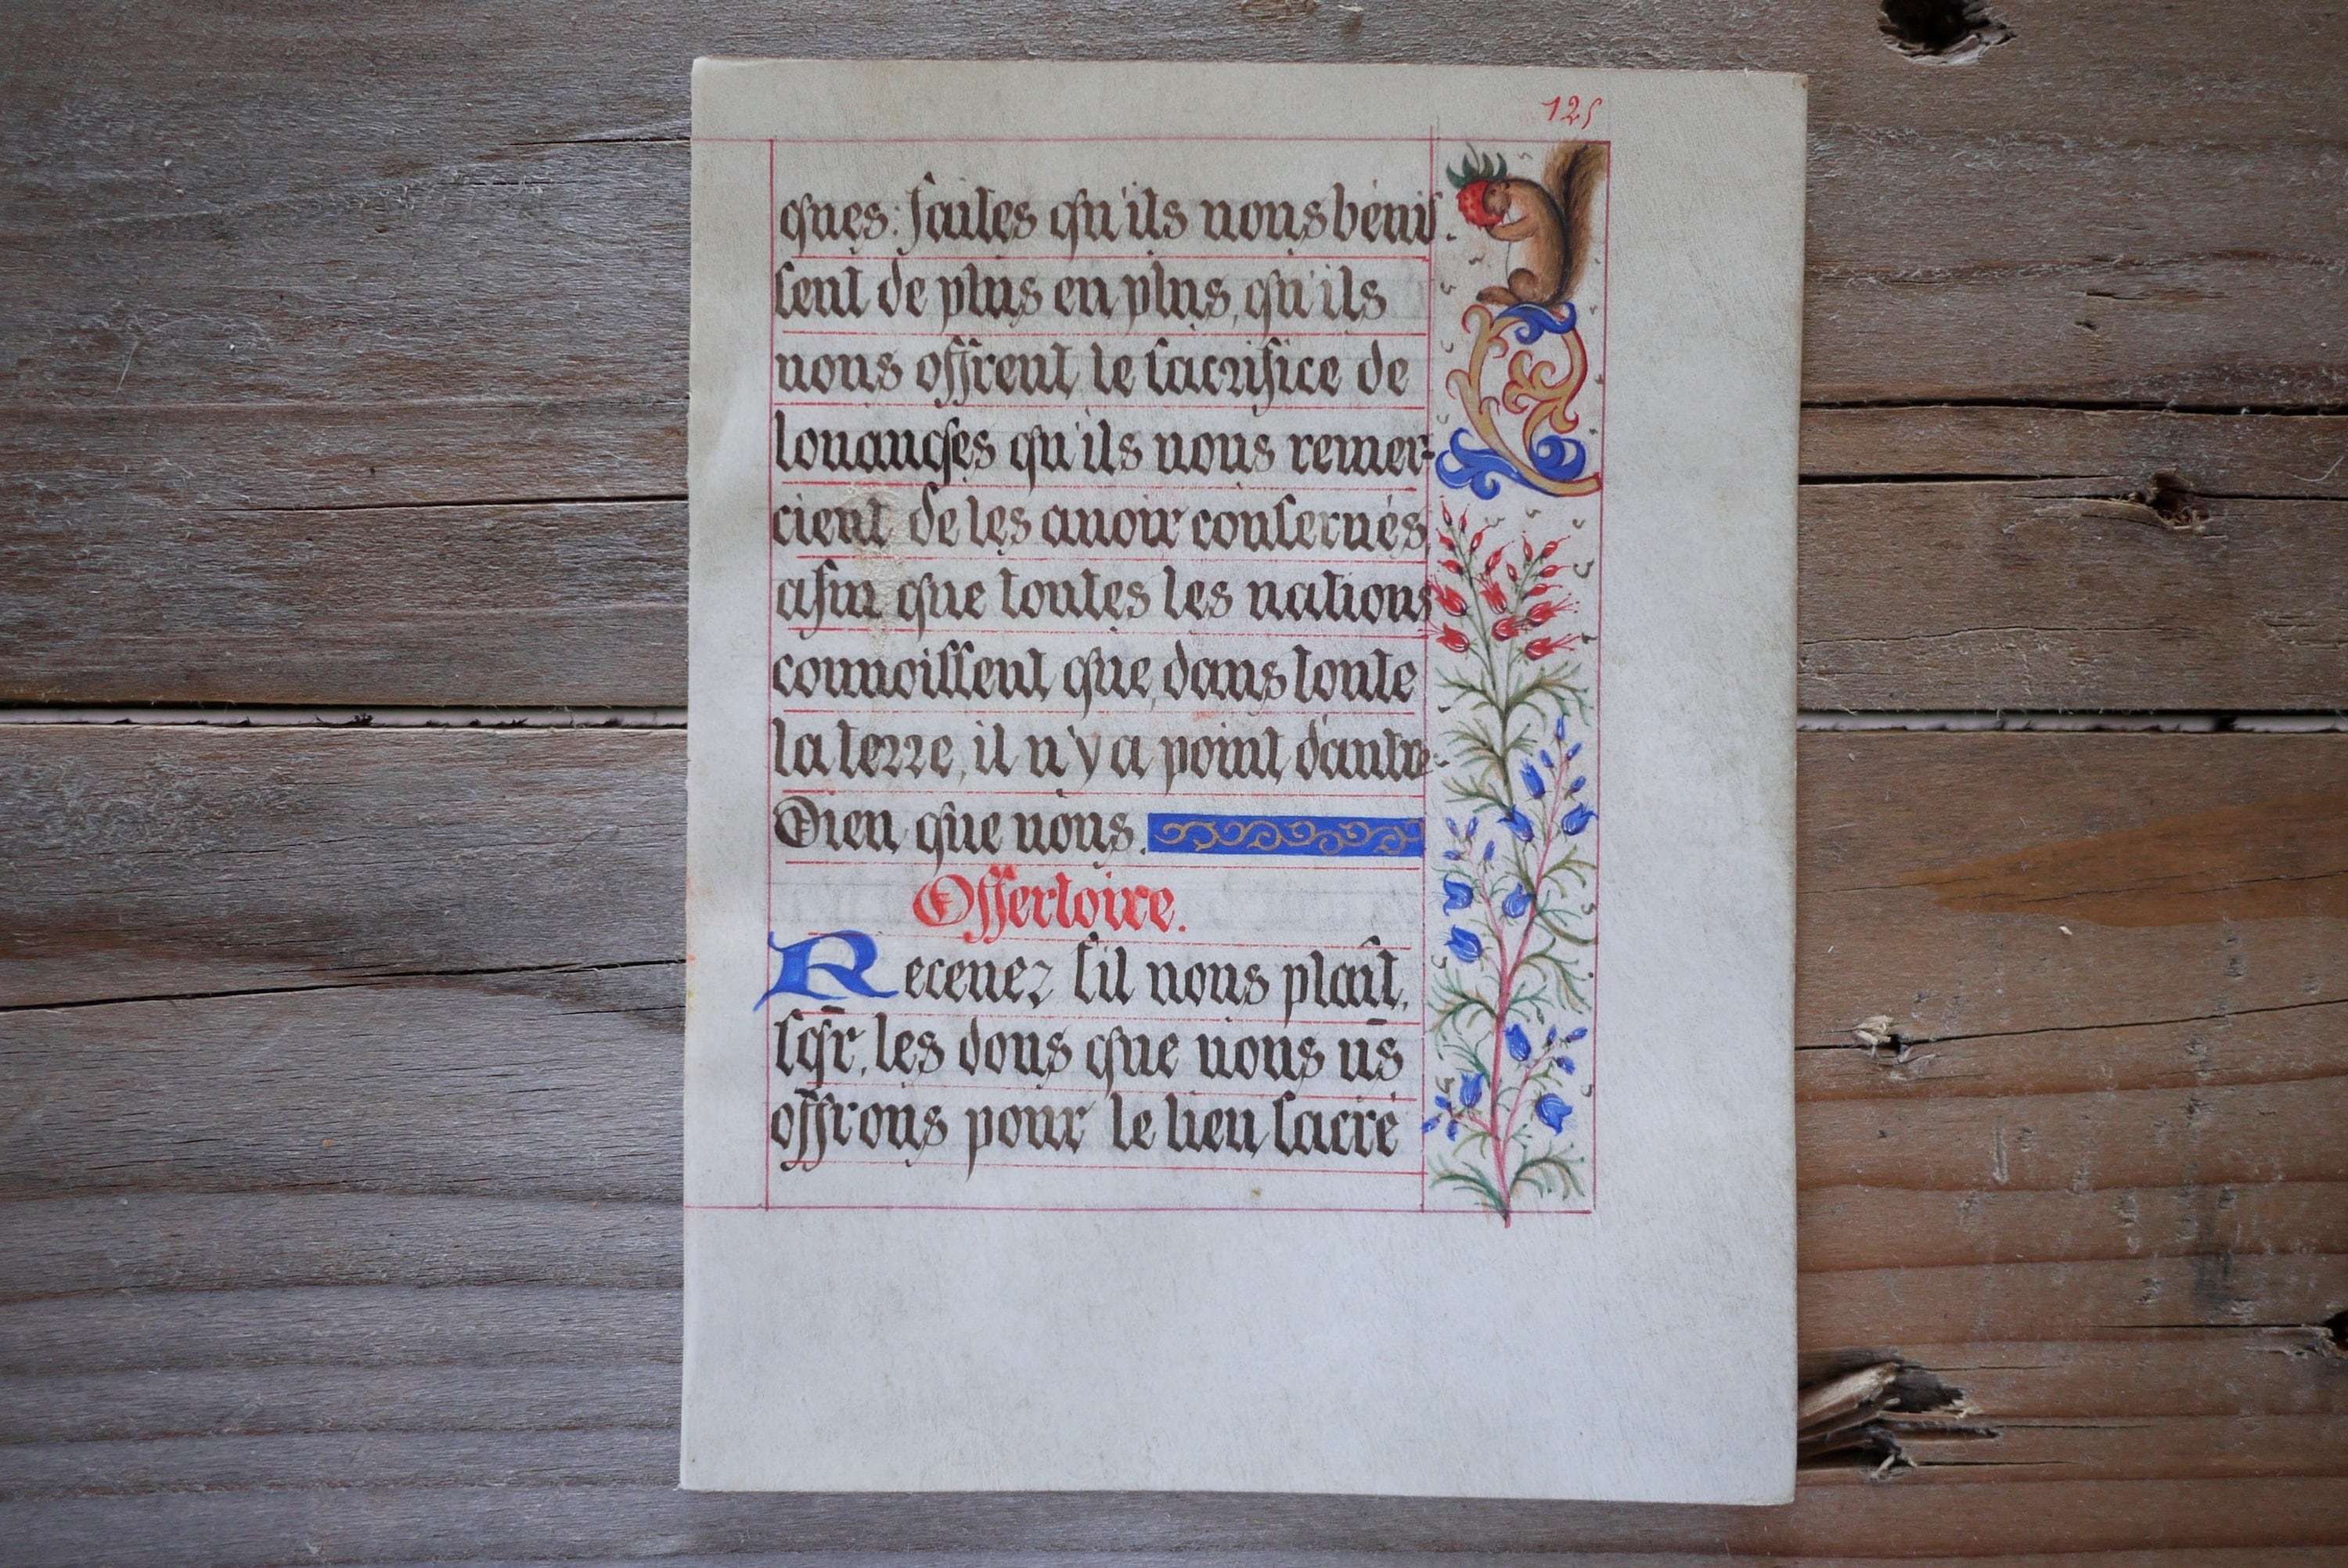 125
ques: faites qu'ils vous bénis.
sent de plus en plus, qu'ils
vous offrent le sacrifice de
louanges qu'ils vous remer-
cient de les avoir conservés,
afin que toutes les nations
connoissent que, dans toute
la terre, il n'y a point d'autre
Dieu que vous.
Offertoire.
Recevez s'il vous plaît,
sgr, les dons que nous us
offrons pour le lieu sacré